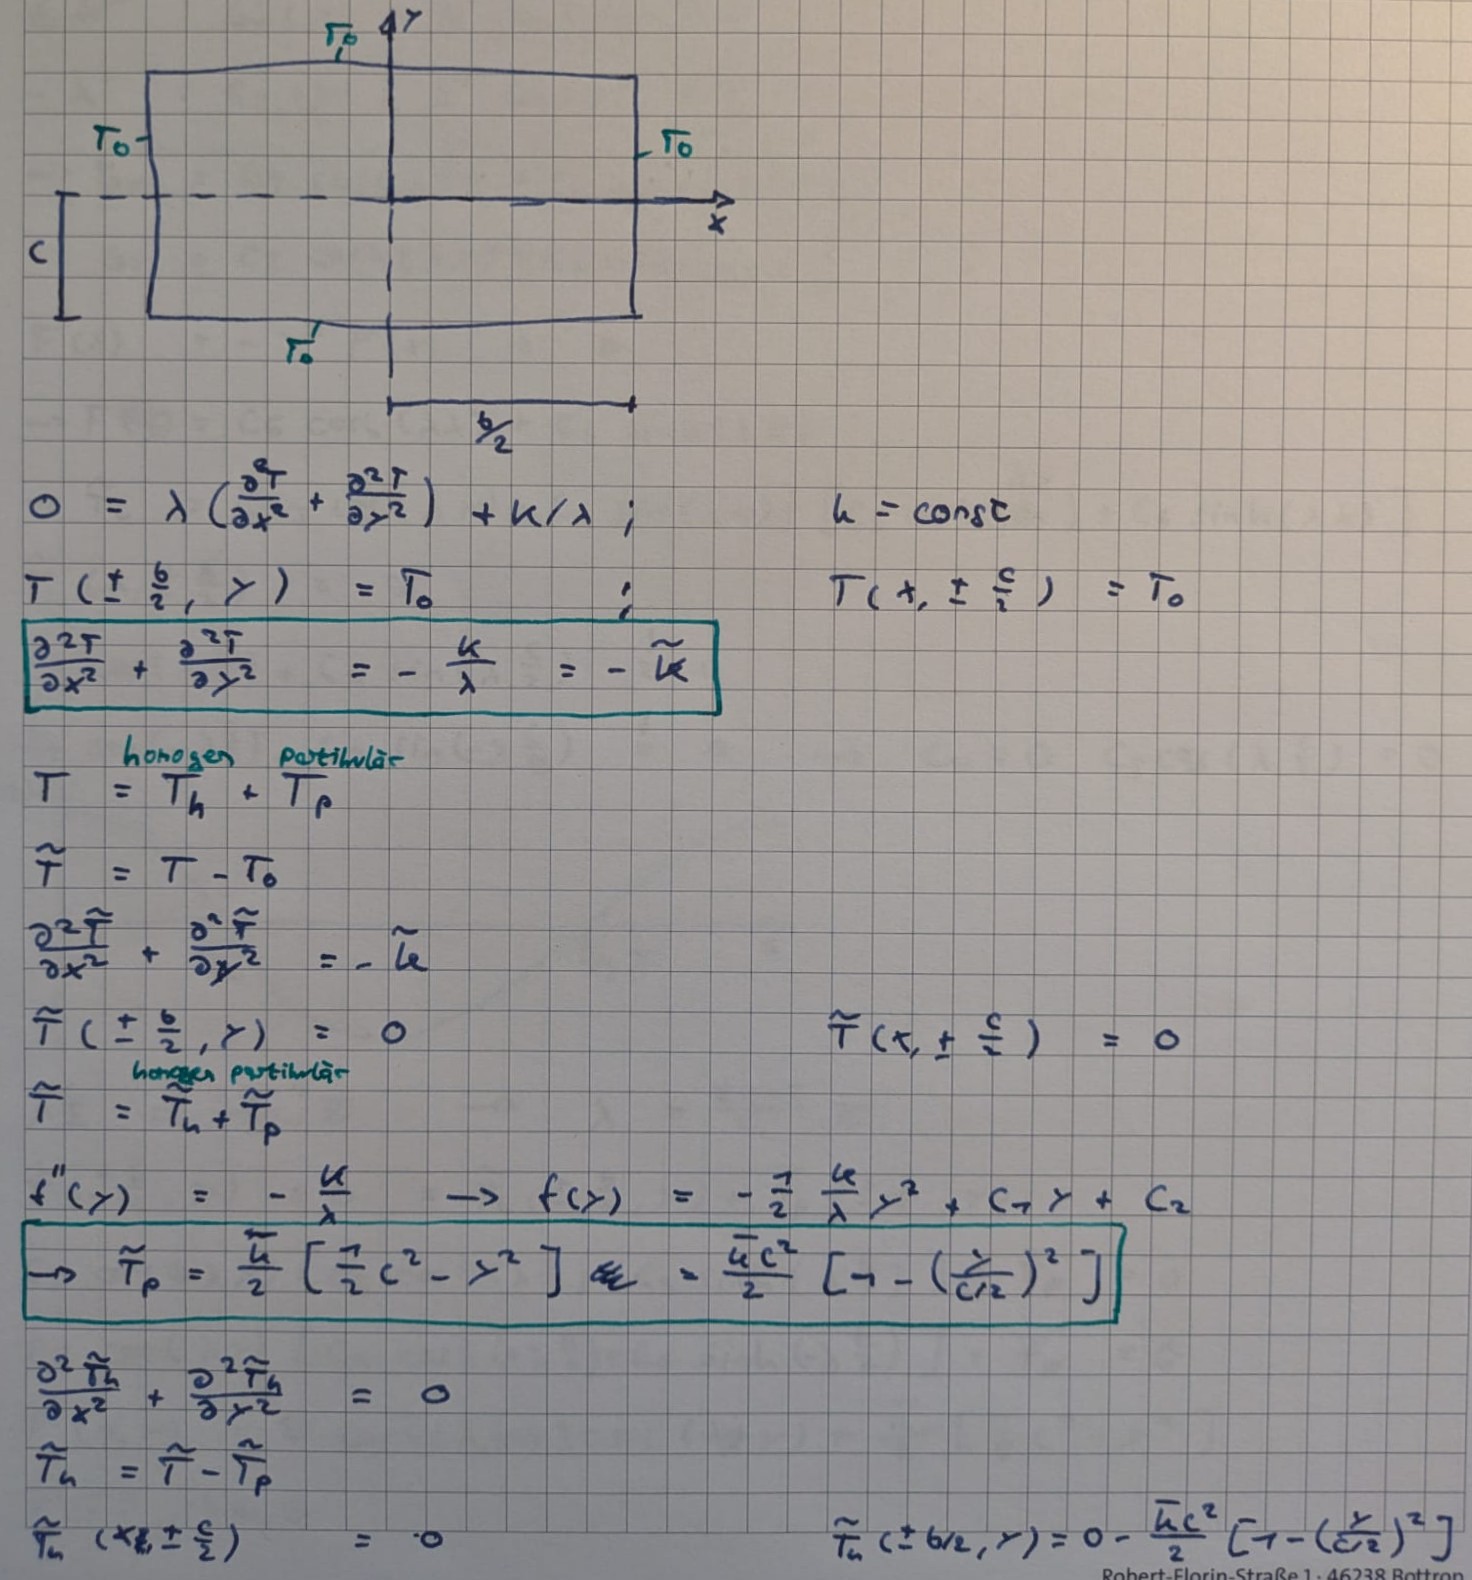 T₀ y
T₀ T₀
x
c
T₀
b/2
0 = λ (∂²T/∂x² + ∂²T/∂y²) + k/λ ; k = const
T (± b/2, y) = T₀ ; T(x, ± c/2) = T₀
∂²T/∂x² + ∂²T/∂y² = - k/λ = - k̃
homogen partikulär
T = Tₕ + Tₚ
T̃ = T - T₀
∂²T̃/∂x² + ∂²T̃/∂y² = - k̃
T̃ (± b/2, y) = 0 T̃ (x, ± c/2) = 0
homogen partikulär
T̃ = T̃ₕ + T̃ₚ
f''(y) = - k/λ → f(y) = - 1/2 k/λ y² + C₁ y + C₂
→ T̃ₚ = k̄/2 [1/2 c² - y²] = k̄c²/2 [1 - (y/(c/2))²]
∂²T̃ₕ/∂x² + ∂²T̃ₕ/∂y² = 0
T̃ₕ = T̃ - T̃ₚ
T̃ₕ (x, ± c/2) = 0 T̃ₕ (± b/2, y) = 0 - k̄c²/2 [1 - (y/(c/2))²]
Robert-Florin-Straße 1 · 46238 Bottrop